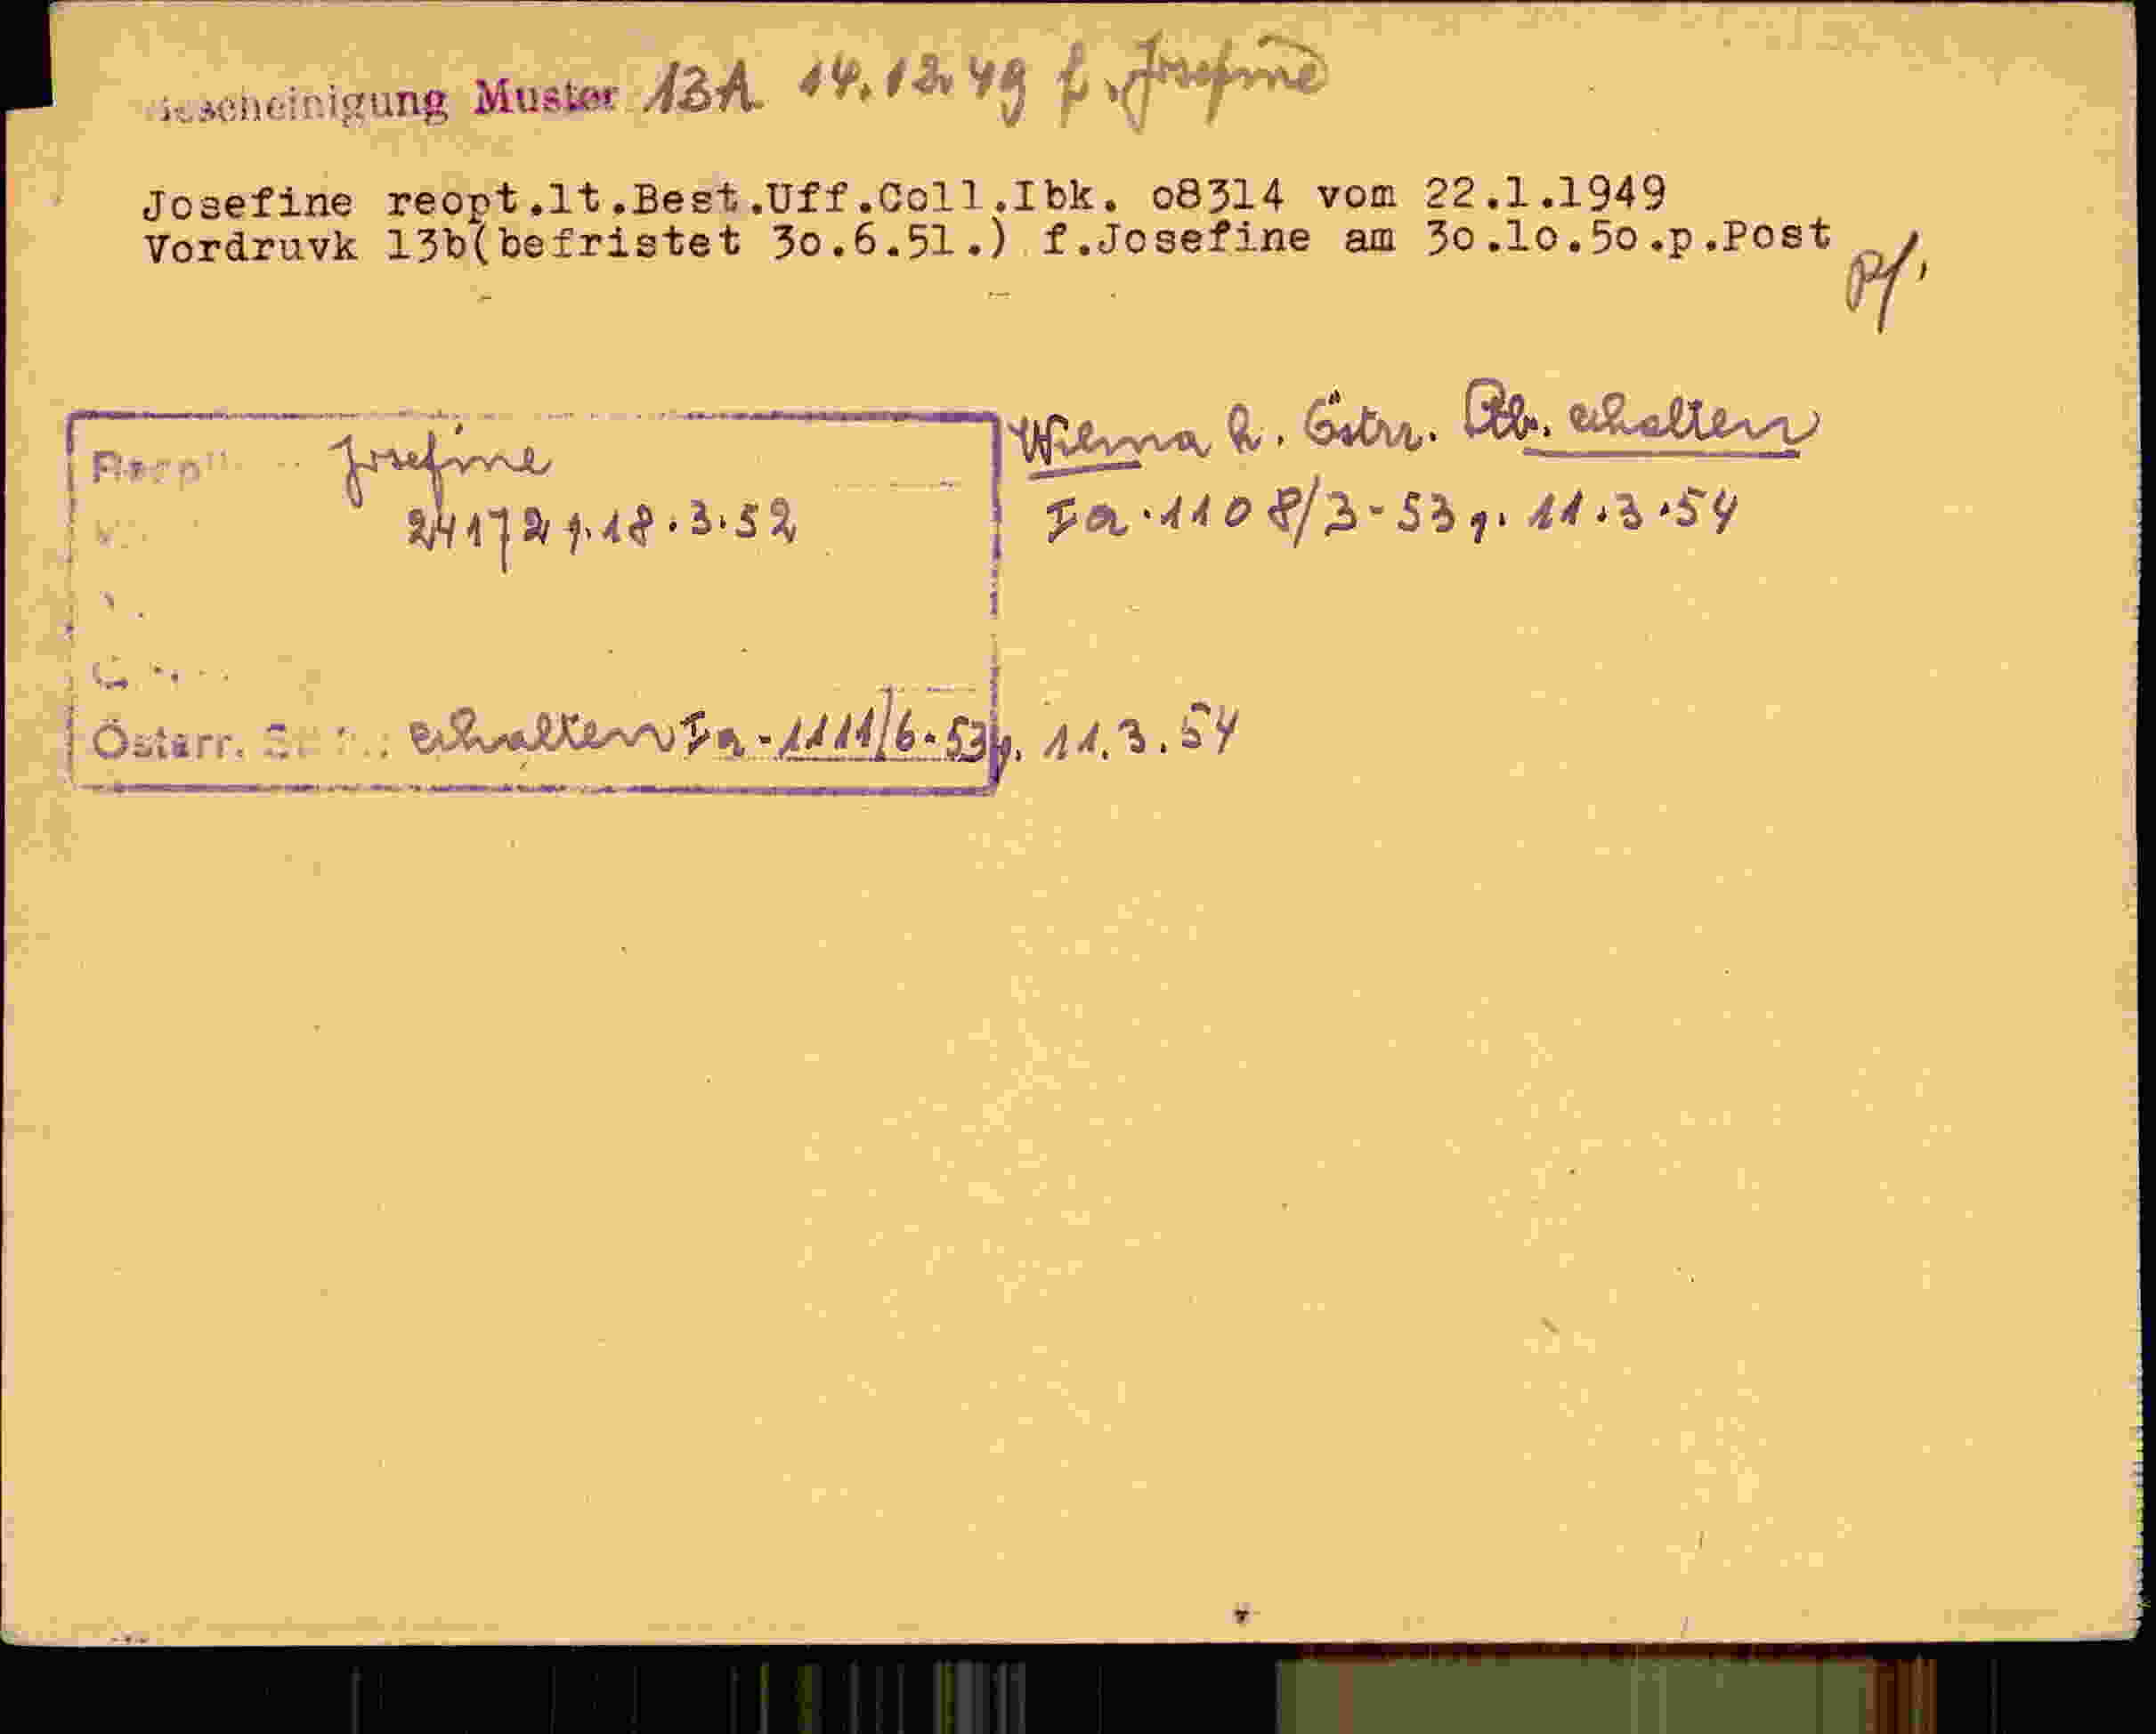 Bescheinigung Muster 13A 14.12.49 f. Josefine
Josefine reopt.lt.Best.Uff.Coll.Ibk. o8314 vom 22.1.1949
Vordruvk 13b(befristet 3o.6.51.) f.Josefine am 3o.lo.5o.p.Post
Pf.
Josefine
24172 v. 18.3.52
Österr. erhalten Ia-1111/6-53 v. 11.3.54
Wilma h. Östrr. Stb. erhalten
Ia-1108/3-53 v. 11.3.54